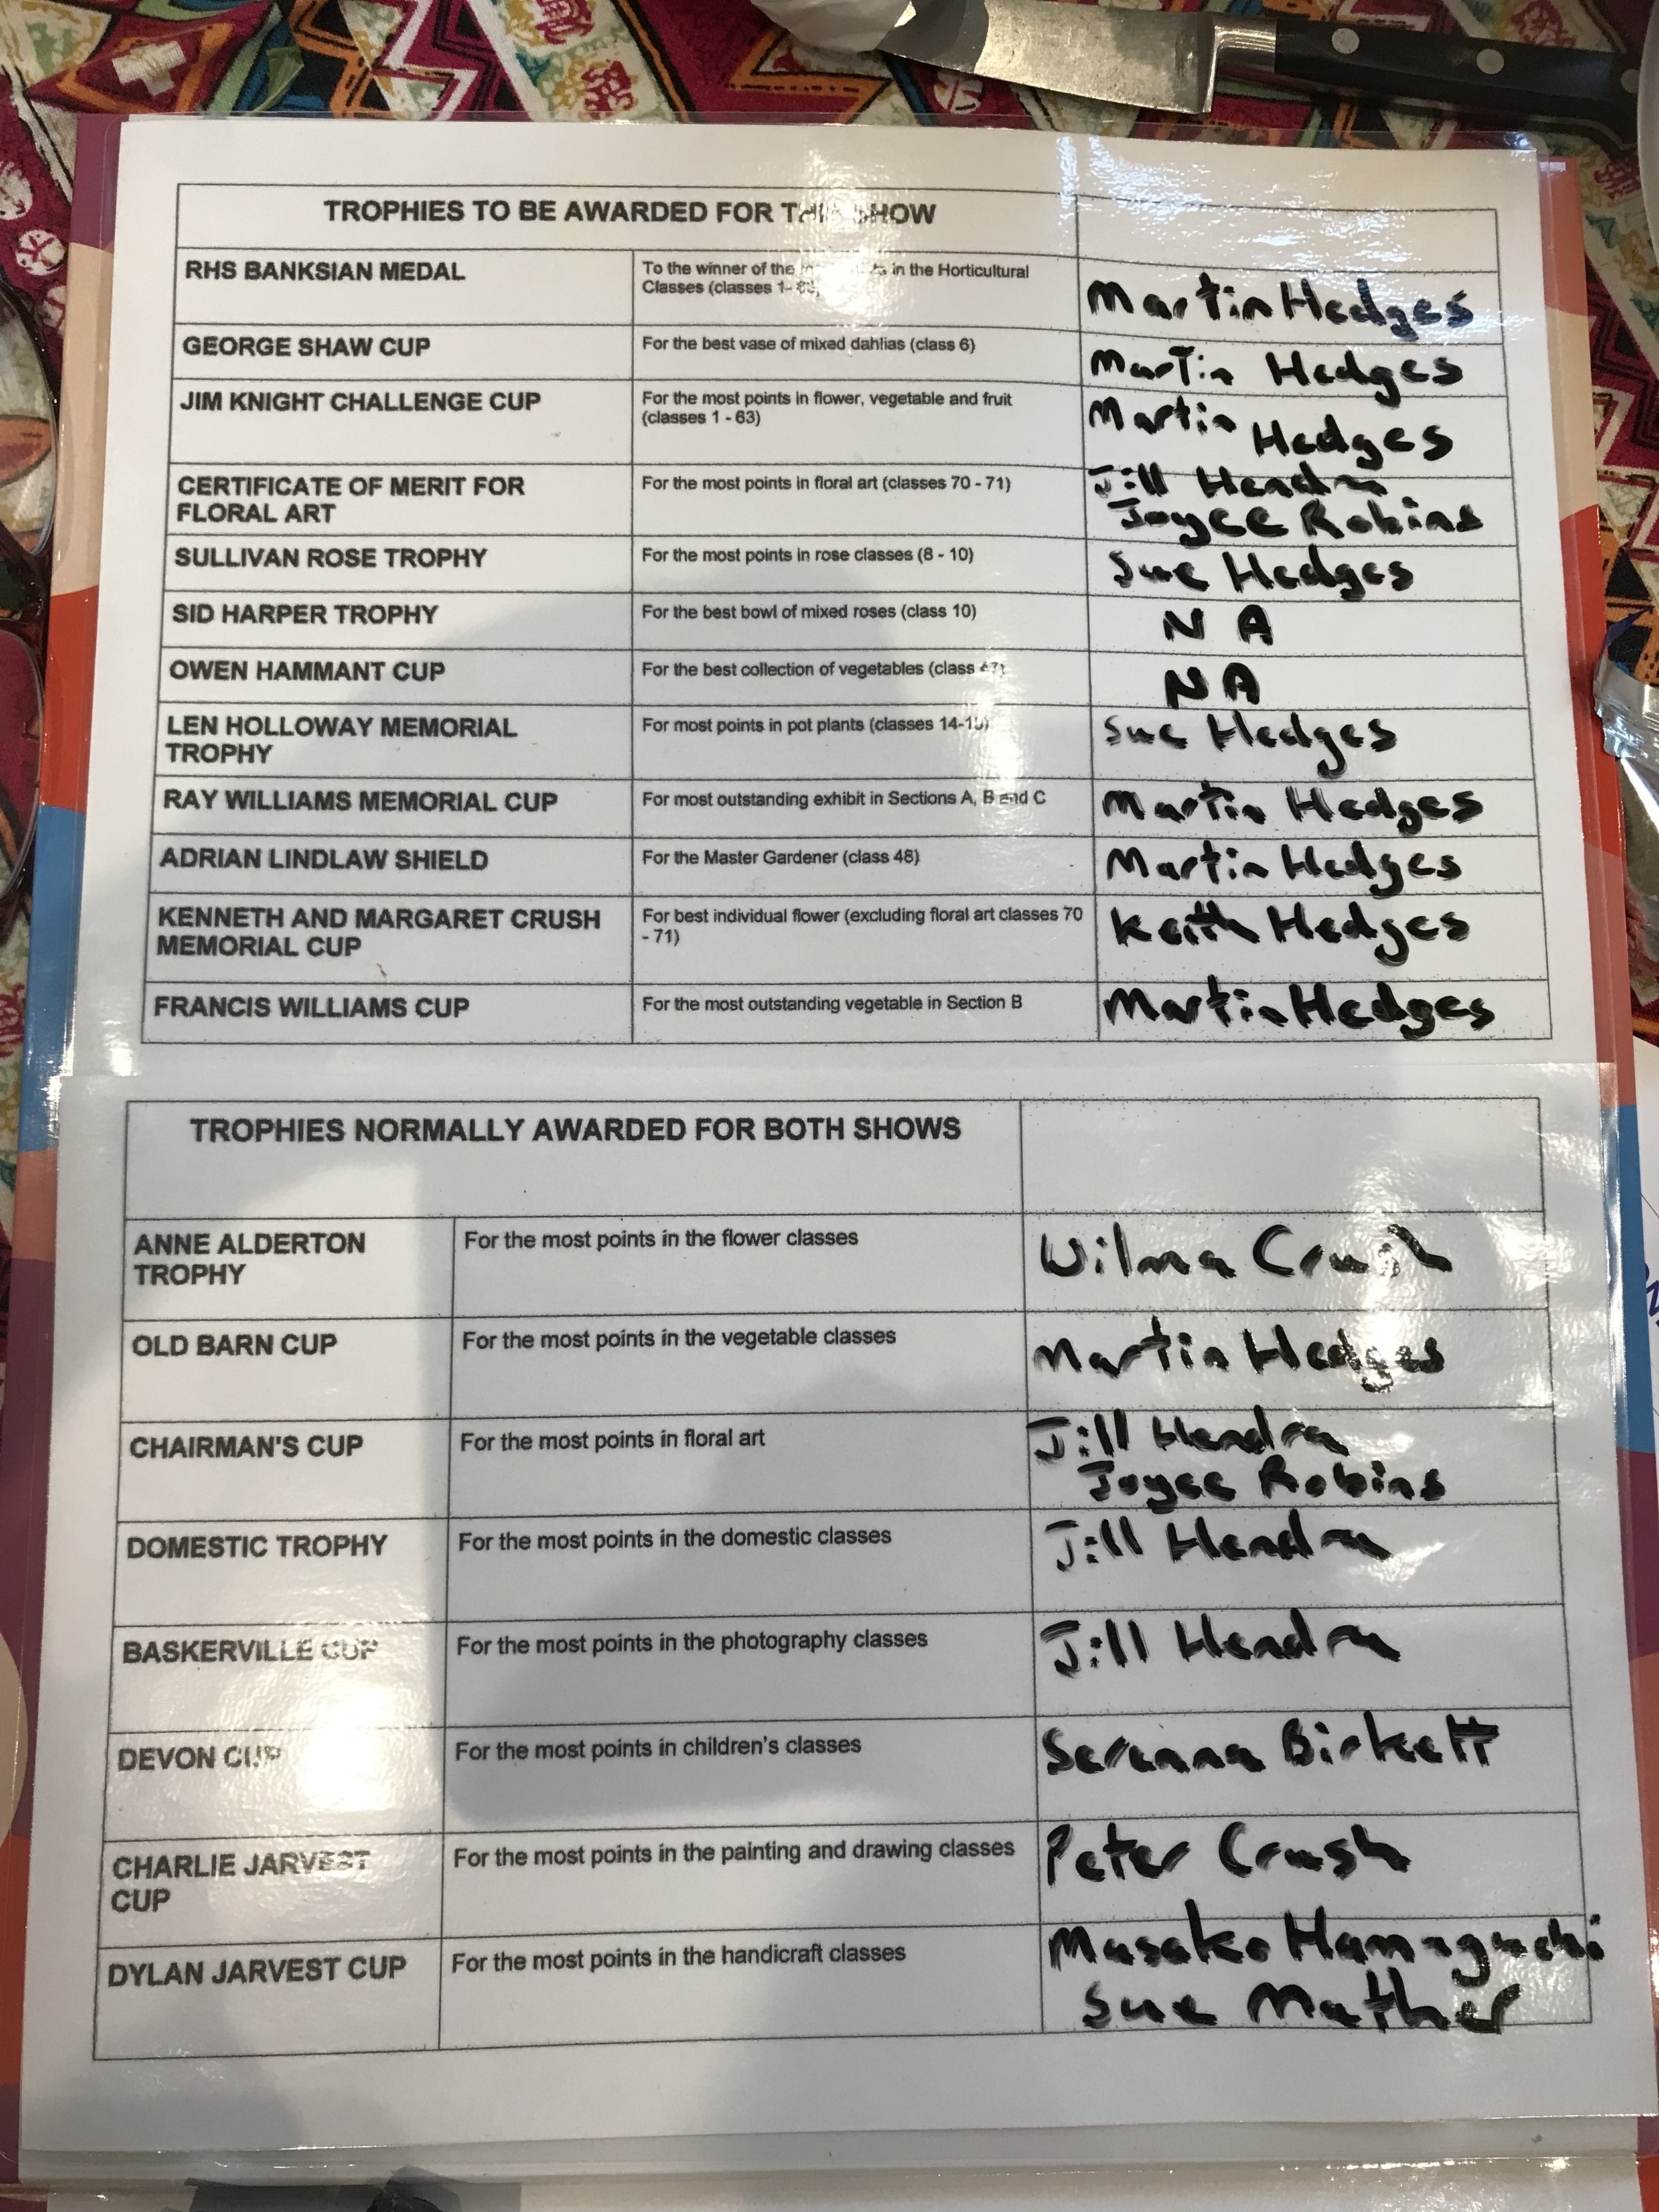 TROPHIES TO BE AWARDED FOR THIS SHOW
RHS BANKSIAN MEDAL
To the winner of the in the Horticultural
Classes (classes 1-
Martin Hedges
GEORGE SHAW CUP
For the best vase of mixed dahlias (class 6)
Martin Hedges
JIM KNIGHT CHALLENGE CUP
For the most points in flower, vegetable and fruit
(classes 1 - 63)
Martin Hedges
CERTIFICATE OF MERIT FOR
FLORAL ART
For the most points in floral art (classes 70 - 71)
Jill Hendra
Joyce Robins
SULLIVAN ROSE TROPHY
For the most points in rose classes (8 - 10)
Sue Hedges
SID HARPER TROPHY
For the best bowl of mixed roses (class 10)
N A
OWEN HAMMANT CUP
For the best collection of vegetables (class
N A
LEN HOLLOWAY MEMORIAL
TROPHY
For most points in pot plants (classes 14-
Sue Hedges
RAY WILLIAMS MEMORIAL CUP
For most outstanding exhibit in Sections A, B and C
Martin Hedges
ADRIAN LINDLAW SHIELD
For the Master Gardener (class 48)
Martin Hedges
KENNETH AND MARGARET CRUSH
MEMORIAL CUP
For best individual flower (excluding floral art classes 70
- 71)
Keith Hedges
FRANCIS WILLIAMS CUP
For the most outstanding vegetable in Section B
Martin Hedges
TROPHIES NORMALLY AWARDED FOR BOTH SHOWS
ANNE ALDERTON
TROPHY
For the most points in the flower classes
Wilma Crush
OLD BARN CUP
For the most points in the vegetable classes
Martin Hedges
CHAIRMAN'S CUP
For the most points in floral art
Jill Hendra
Joyce Robins
DOMESTIC TROPHY
For the most points in the domestic classes
Jill Hendra
BASKERVILLE CUP
For the most points in the photography classes
Jill Hendra
DEVON CUP
For the most points in children's classes
Serenna Birkett
CHARLIE JARVEST
CUP
For the most points in the painting and drawing classes
Peter Crush
DYLAN JARVEST CUP
For the most points in the handicraft classes
Masako Hamaguchi
Sue Mather